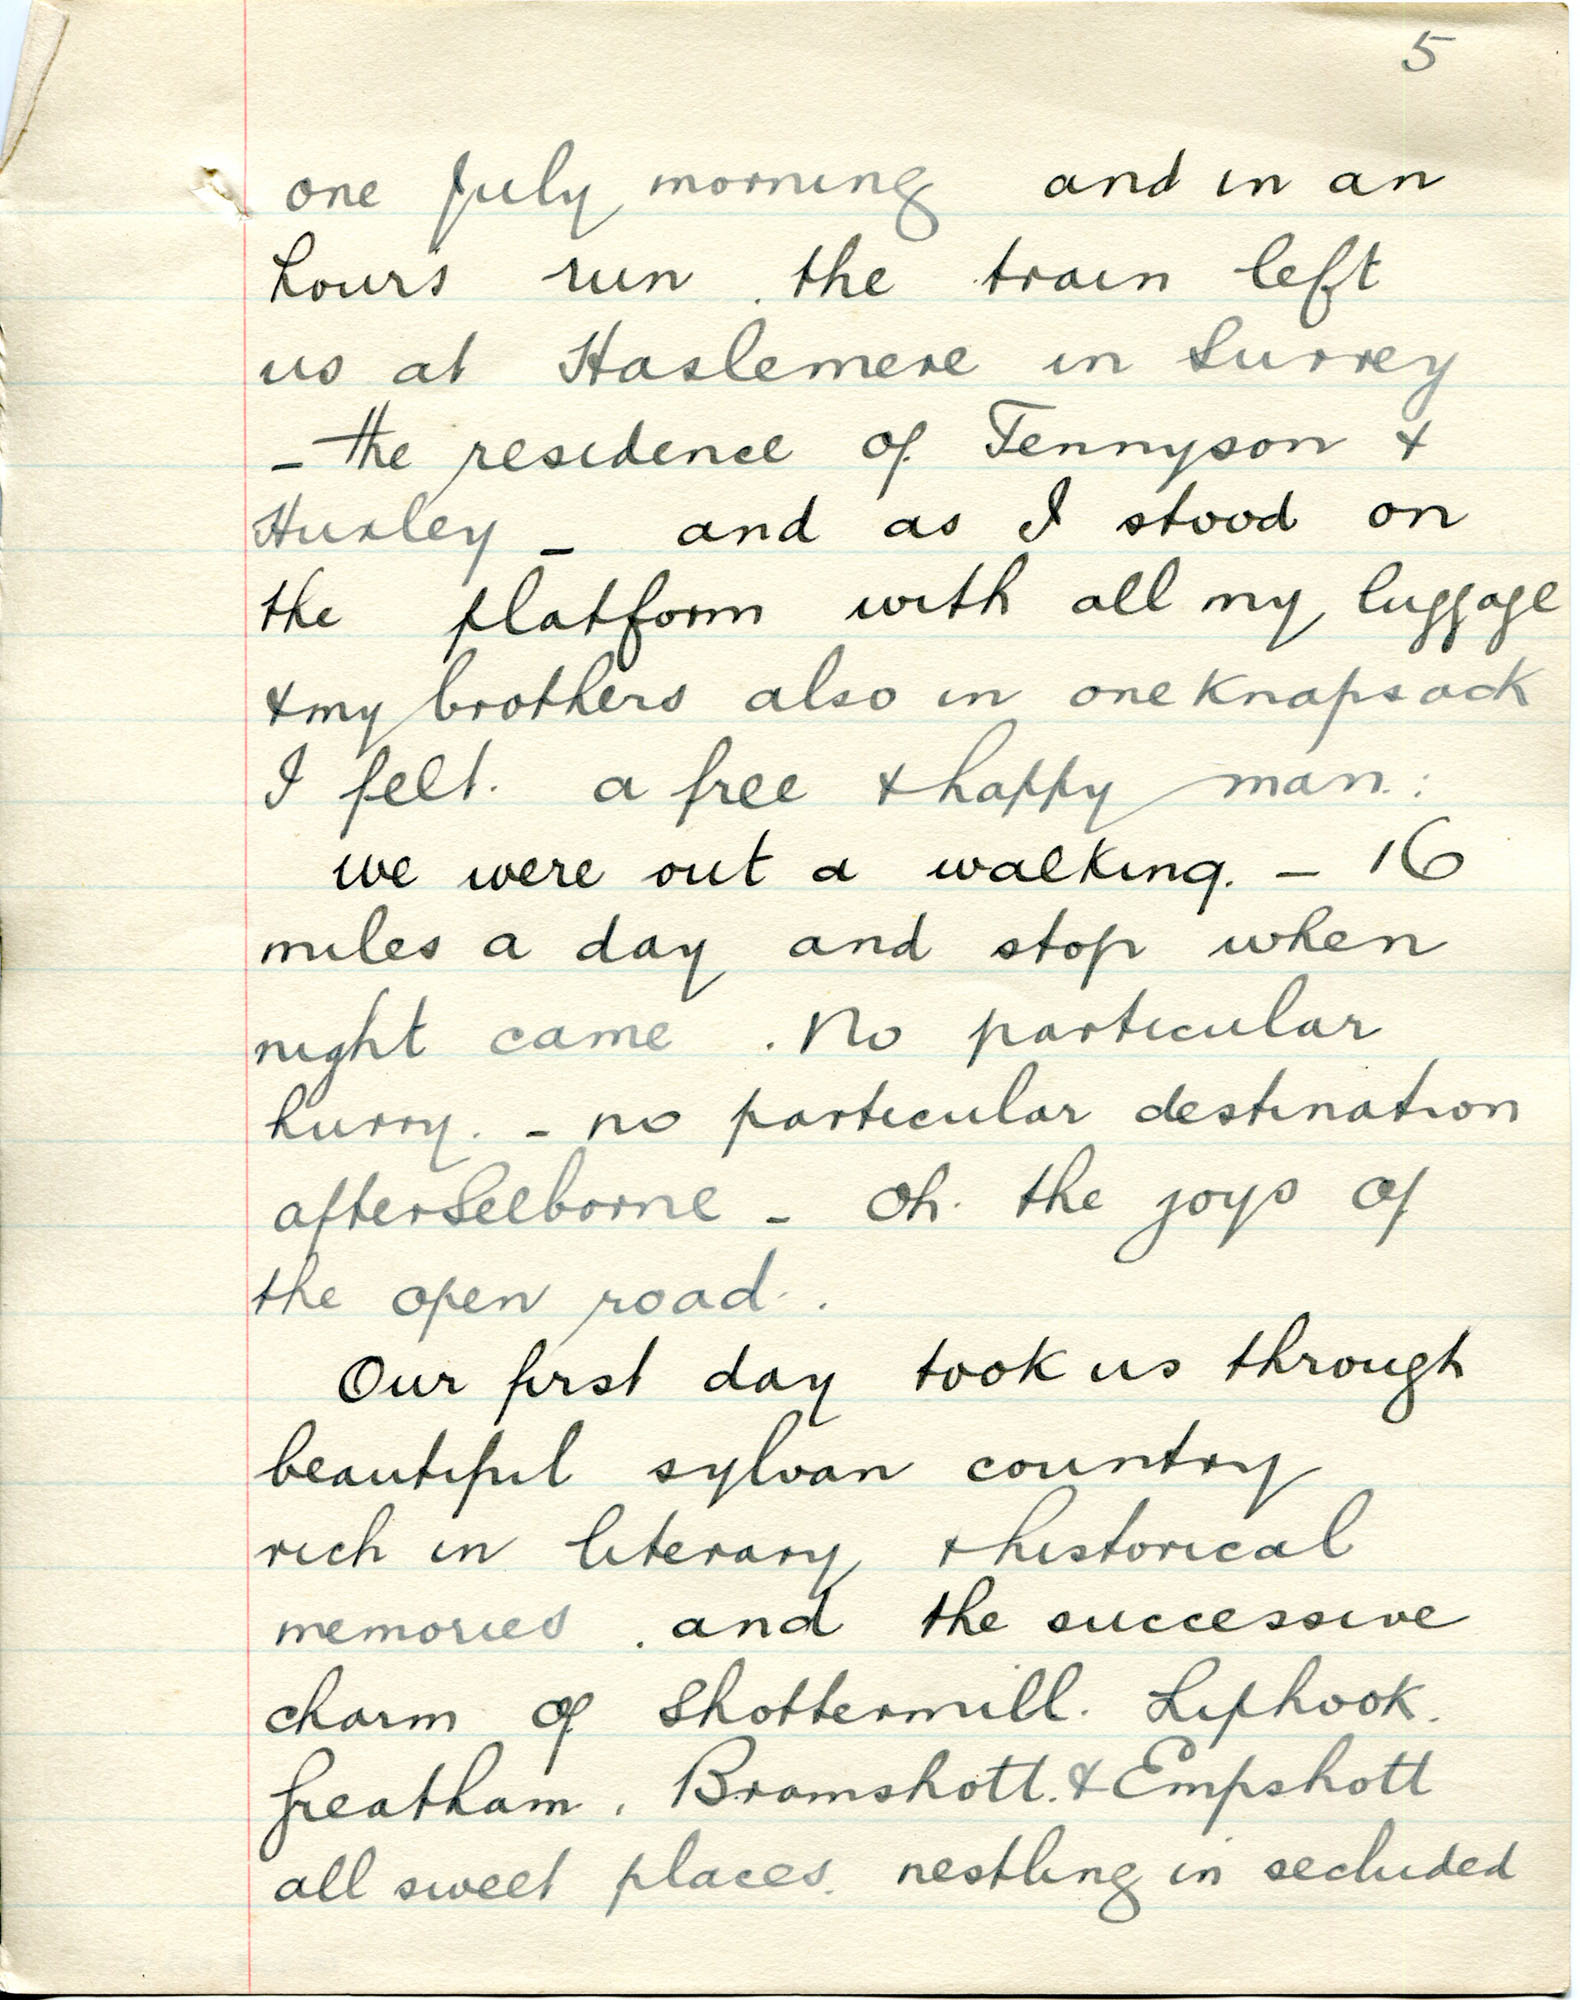 5
one July morning and in an
hours run . the train left
us at Haslemere in Surrey
- the residence of Tennyson &
Huxley - and as I stood on
the platform with all my luggage
& my brothers also in one Knapsack
I felt. a free & happy man.:
we were out a walking. - 16
miles a day and stop when
night came . No particular
hurry. - no particular destination
after Selborne - Oh. the joys of
the open road. .
Our first day took us through
beautiful sylvan country
rich in literary & historical
memories . and the successive
charm of Shottermill. Liphook.
Greatham . Bramshott. & Empshott
all sweet places. nestling in secluded